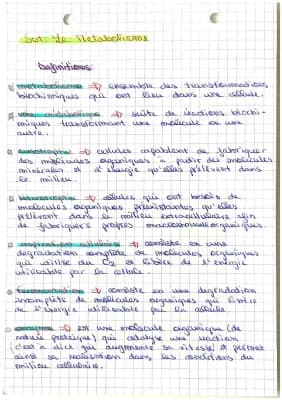 SVT Le Metabolisme
Définitions:
metabolisme → ensemble des transformations
biochimiques qui ont lieu dans une cellule.
voie métabolique → suite de réactions biochi-
miques transformant une molécule en une
autre.
autotrophe → cellules capablent de fabriquer
des molécules organiques à partir des molécules
minérales et d'énergie qu'elles prélèvent dans
le milieu.
hétérotrophe → cellules qui ont besoin de
molécules organiques préexistantes qu'elles
prélèvent dans le milieu extracellulaire afin
de fabriquer propres macromolécules organiques.
respiration cellulaire → consiste en une
dégradation complète de molécules organiques
qui utilise du O2 et libère de l'énergie
utilisable par la cellule.
fermentation → consiste en une dégradation
incomplète de molécules organiques qui libère
de l'énergie utilisable par la cellule
enzyme → est une molécule organique (de
nature protéique) qui catalyse une réaction
c'est à dire qui augmente sa vitesse et permet
ainsi sa réalisation dans les conditions du
milieu cellulaire.